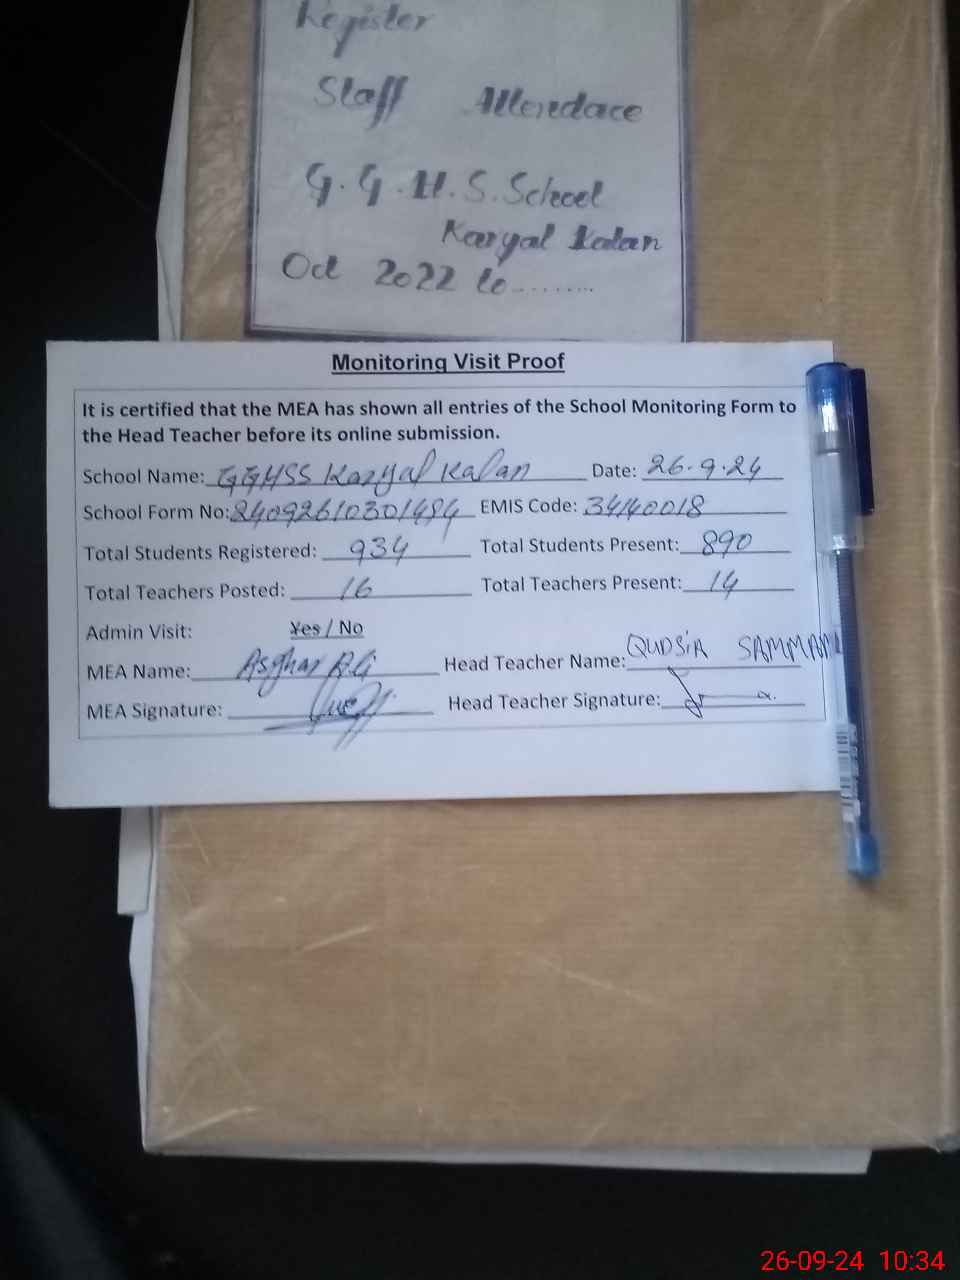 Register
Staff Attendace
G.G.H.S.School
Karyal Kalan
Oct 2022 to........
Monitoring Visit Proof
It is certified that the MEA has shown all entries of the School Monitoring Form to
the Head Teacher before its online submission.
School Name: GGHSS Karyal Kalan Date: 26.9.24
School Form No: EMIS Code: 34140018
Total Students Registered: 934 Total Students Present: 890
Total Teachers Posted: 16 Total Teachers Present: 14
Admin Visit: Yes / No
MEA Name: Asghar Ali Head Teacher Name: QUDSiA SAMMAN
MEA Signature: Head Teacher Signature:
26-09-24 10:34